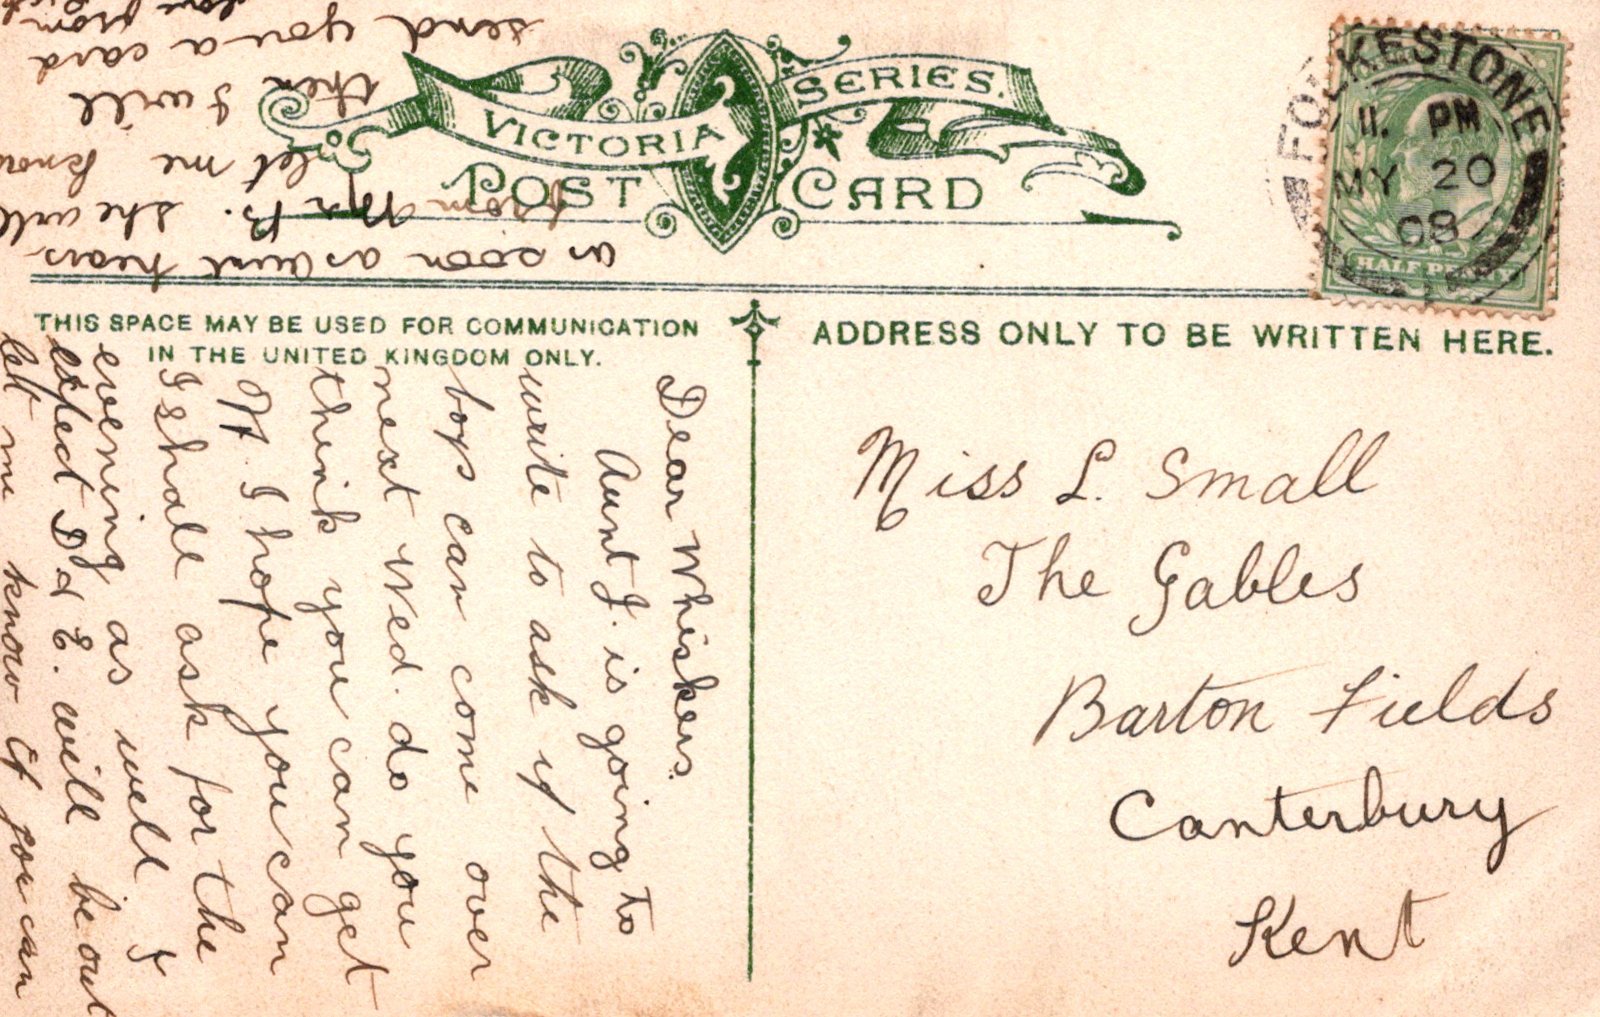 VICTORIA SERIES.
POST CARD
FOLKESTONE
11. PM
MY 20
08
HALF PENNY
THIS SPACE MAY BE USED FOR COMMUNICATION
IN THE UNITED KINGDOM ONLY.
ADDRESS ONLY TO BE WRITTEN HERE.
Dear Whiskers.
Aunt J. is going to
write to ask if the
boys can come over
next Wed. do you
think you can get
off I hope you can
I shall ask for the
evening as well I
expect D & E. will be out
let me know if you can
as soon as Aunt hears
from Mrs B. she will
let me know
then I will
send you a card
love from
Miss L. Small
The Gables
Barton Fields
Canterbury
Kent